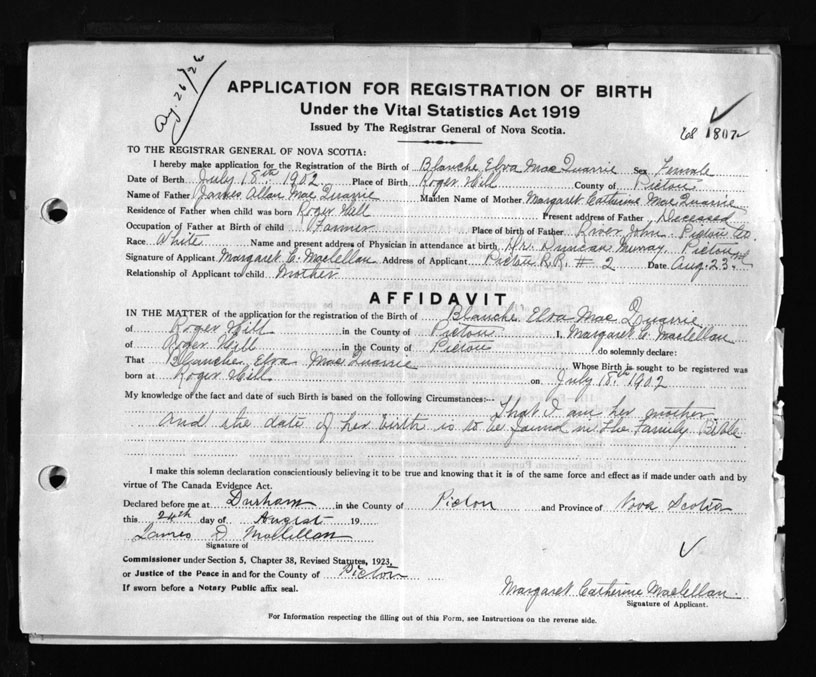 Aug. 26/26
APPLICATION FOR REGISTRATION OF BIRTH
Under the Vital Statistics Act 1919
Issued by The Registrar General of Nova Scotia.
68 1807
TO THE REGISTRAR GENERAL OF NOVA SCOTIA:
I hereby make application for the Registration of the Birth of Blanche Elva MacQuarrie Sex Female
Date of Birth July 18th 1902 Place of Birth Roger Hill County of Pictou
Name of Father Allan MacQuarrie Maiden Name of Mother Margaret Catherine MacQuarrie
Residence of Father when child was born Roger Hill Present address of Father Deceased
Occupation of Father at Birth of child Farmer Place of birth of Father River John Pictou Co.
Race White Name and present address of Physician in attendance at birth Dr. Duncan Murray, Pictou
Signature of Applicant Margaret C. Maclellan Address of Applicant Pictou R.R. # 2 Date Aug. 23.
Relationship of Applicant to child Mother
AFFIDAVIT
IN THE MATTER of the application for the registration of the Birth of Blanche Elva MacQuarrie
of Roger Hill in the County of Pictou I, Margaret C. Maclellan
of Roger Hill in the County of Pictou do solemnly declare:
That Blanche Elva MacQuarrie Whose Birth is sought to be registered was
born at Roger Hill on July 18th 1902
My knowledge of the fact and date of such Birth is based on the following Circumstances:--
That I am her mother
and the date of her birth is to be found in the Family Bible
I make this solemn declaration conscientiously believing it to be true and knowing that it is of the same force and effect as if made under oath and by
virtue of The Canada Evidence Act.
Declared before me at Durham in the County of Pictou and Province of Nova Scotia
this 24th day of August 19
James D Maclellan
Signature of
Commissioner under Section 5, Chapter 38, Revised Statutes, 1923,
or Justice of the Peace in and for the County of Pictou
If sworn before a Notary Public affix seal.
Margaret Catherine Maclellan
Signature of Applicant.
For Information respecting the filling out of this Form, see Instructions on the reverse side.